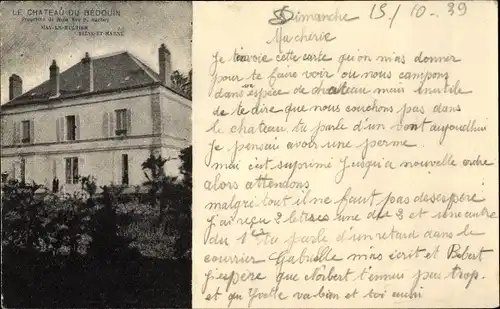 LE CHATEAU DU BÉDOUIN
MAY-EN-MULTIEN
SEINE-ET-MARNE
Dimanche 15/10-39
Ma cherie
Je t'envoie cette carte qu'on m'as donner
pour te faire voir ou nous campons
dans espèce de chateau mais inutile
de te dire que nous couchons pas dans
le chateau, tu parle d'un vent aujourdhui
Je pensai avoir une perme.
mai c'est suprimé Jusqu'a nouvelle ordre
alors attendons
malgré tout il ne faut pas desespéré
J'ai reçu 2 lettres une du 3 et une autre
du 1er Tu parle d'un retard dans le
courrier Gabrielle m'as écrit et Bebert
J'espère que Norbert t'ennuie pas trop.
et que Yvette va bien et toi aussi